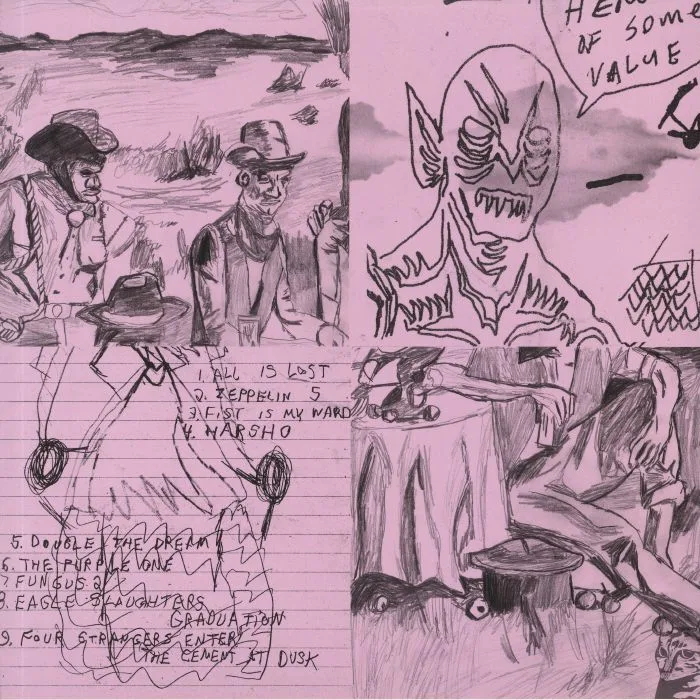 OF SOME
VALUE
1. ALL IS LOST
2. ZEPPELIN 5
3. FIST IS MY WARD
4. HARSHO
5. DOUBLE THE DREAM
6. THE PURPLE ONE
7. FUNGUS 2
8. EAGLE SLAUGHTERS
GRADUATION
9. FOUR STRANGERS ENTER
THE CEMENT AT DUSK